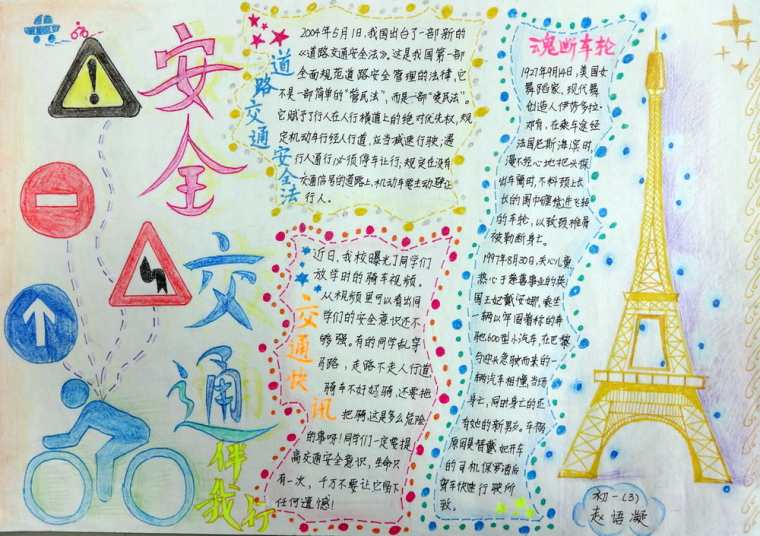 安全
交通
伴我行
道路交通安全法
2004年5月1日,我国出台了一部新的
《道路交通安全法》。这是我国第一部
全面规范道路安全管理的法律,它
不是一部简单的“管民法”,而是一部“爱民法”。
它赋予了行人在人行横道上的绝对优先权,规
定机动车行经人行道,应当减速行驶;遇
行人通行必须停车让行;规定在没有
交通信号的道路上,机动车要主动避让
行人。
交通快讯
近日,我校曝光了同学们
放学时的骑车视频。
从视频里可以看出同
学们的安全意识还不
够强。有的同学乱穿
马路,走路不走人行道
骑车不好好骑,还要把
把骑,这是多么危险
的事呀!同学们一定要提
高交通安全意识,生命只
有一次,千万不要让它留下
任何遗憾!
魂断车轮
1927年9月14日,美国女
舞蹈家、现代舞
创造人伊莎多拉·
邓肯,在乘车途经
法国尼斯海滨时,
漫不经心地把头探
出车窗时,不料颈上长
长的围巾缠绕进飞转
的车轮,以致颈椎骨
被勒断身亡。
1997年8月30日,关心儿童,
热心于慈善事业的英
国王妃戴安娜,乘坐
一辆以年迈着称的奔
驰600型小汽车,在巴黎
与迎面急驶而来的一
辆汽车相撞,当场
身亡,同时身亡的还
有她的新男友。车祸
原因是替戴妃开车
的司机保罗酒后
驾车快速行驶所
致。
初一(3)
赵悟凝